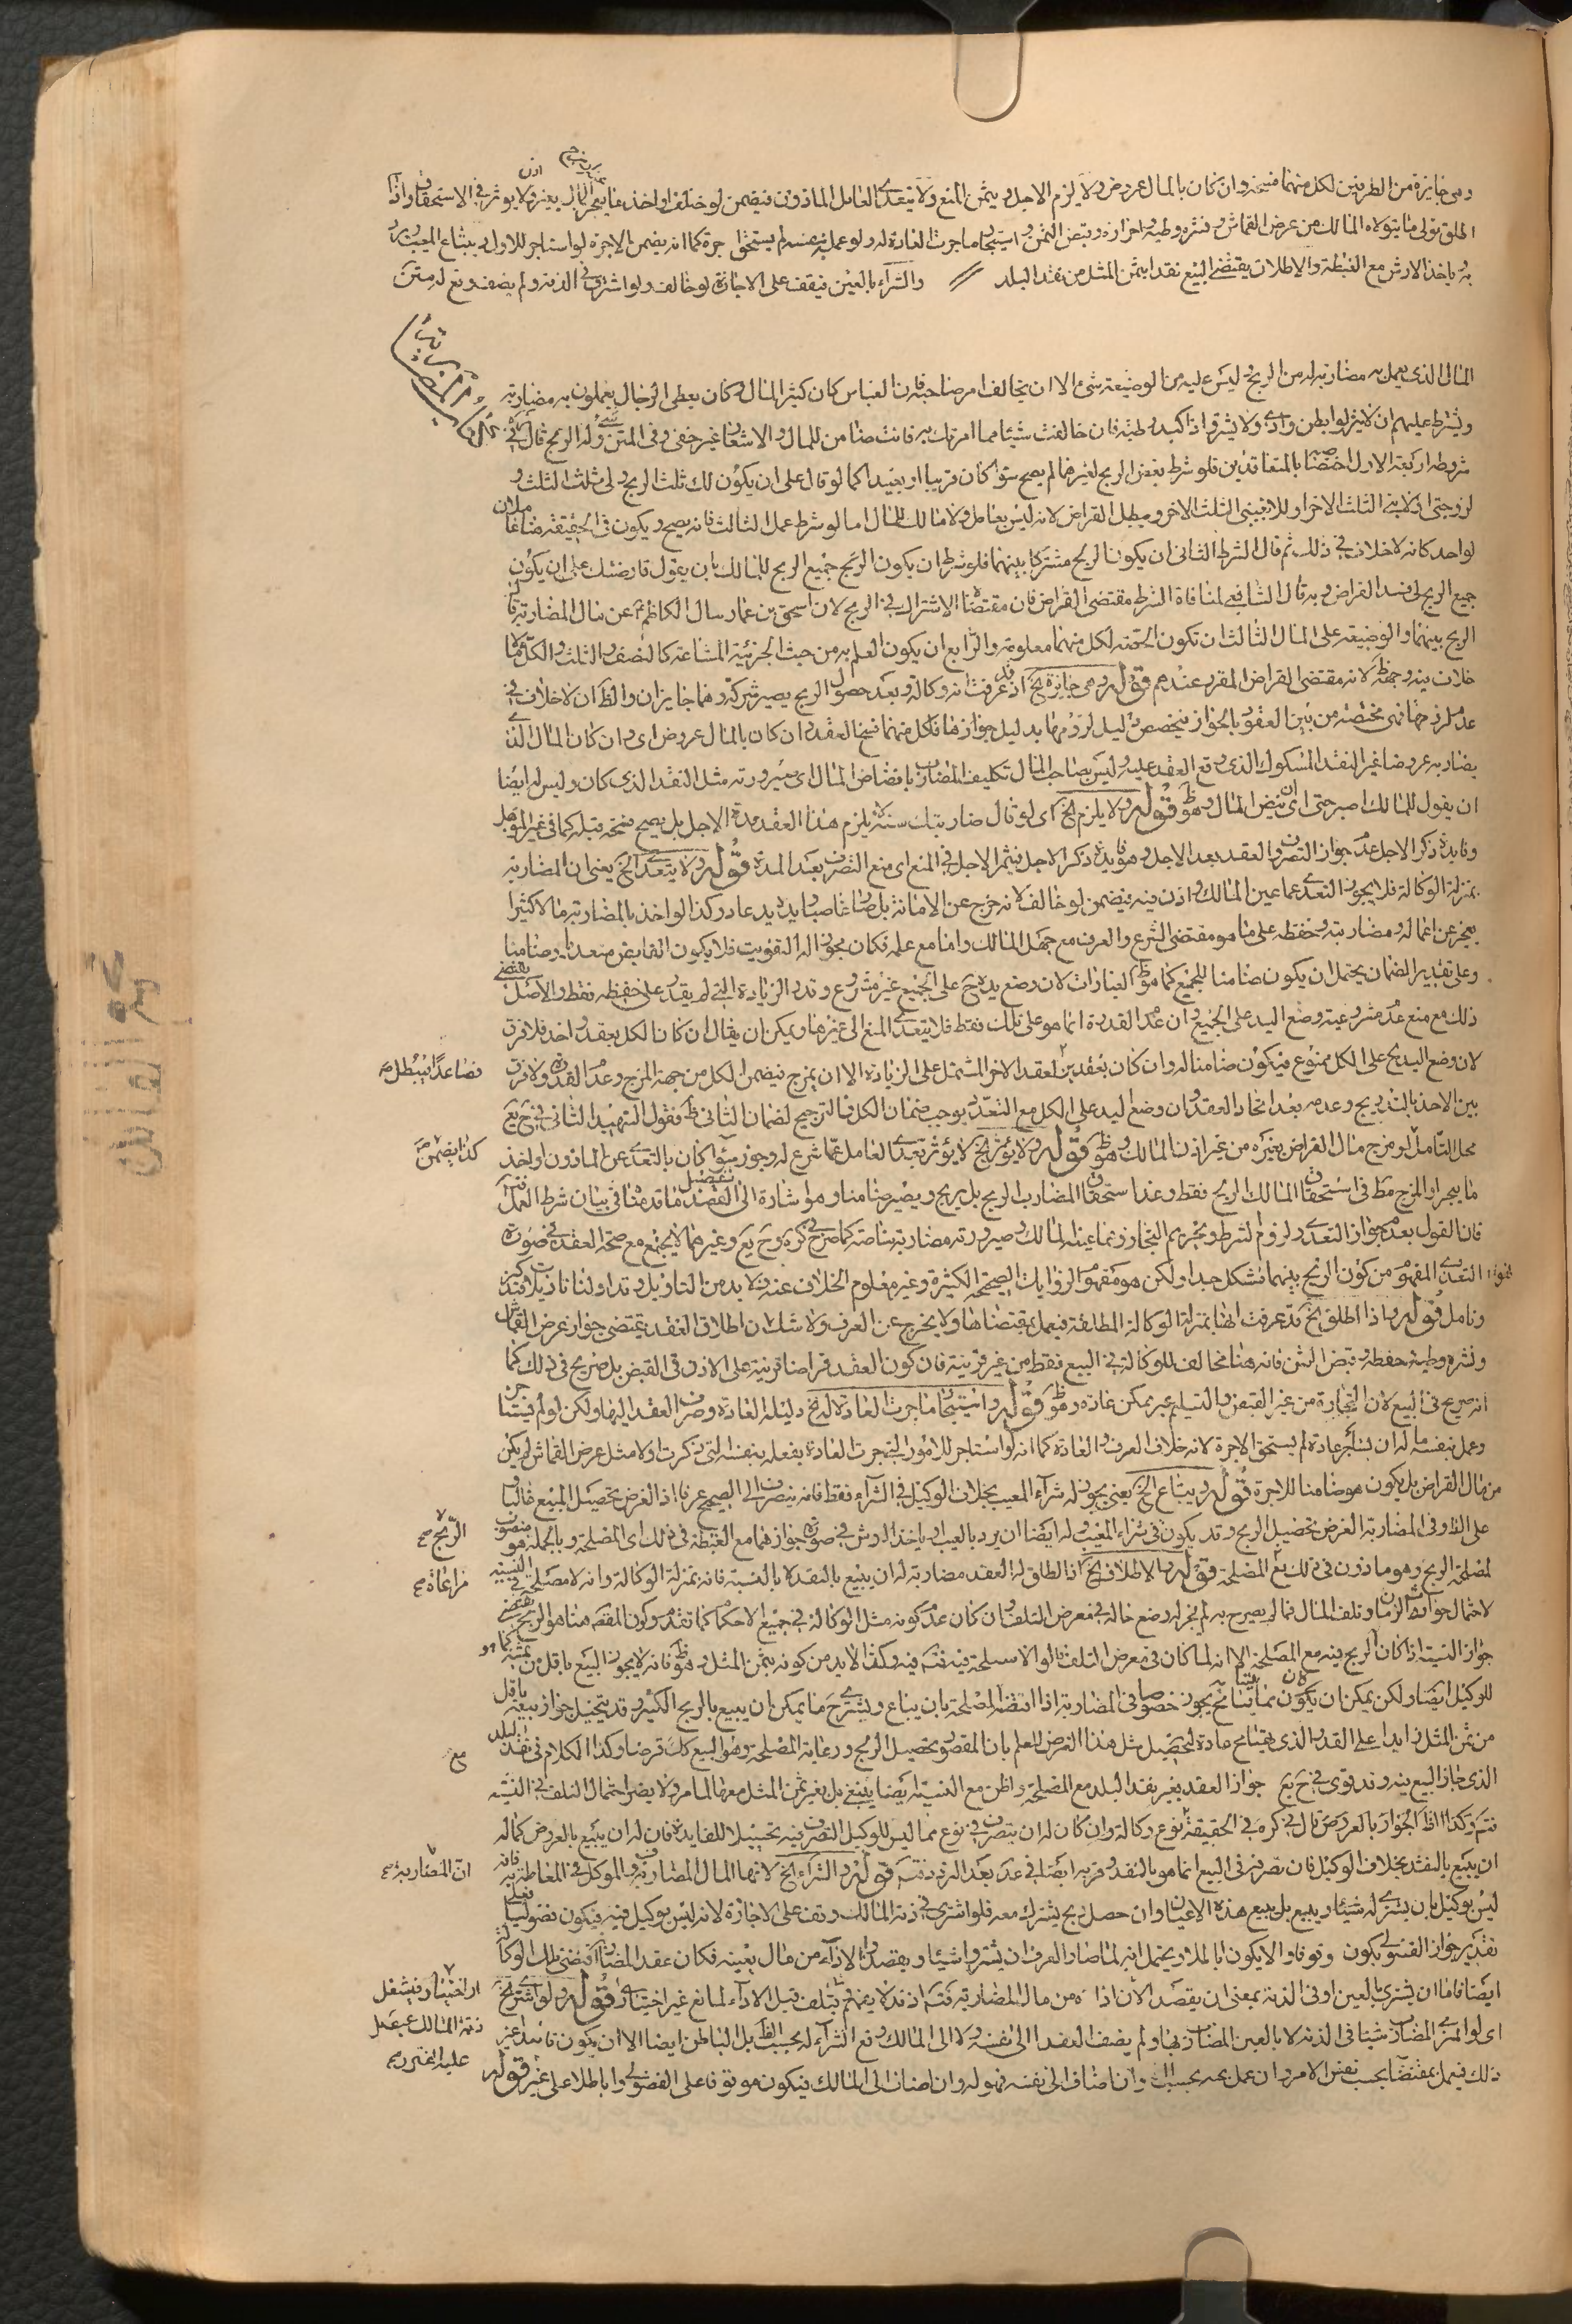 وهى جايزة من الطرفين لكل منهما فسخه وان كان بالمال عروض ولا يلزم الاجل ويثمر المنع ولا يتعدى العامل الماذون فيضمن لو خالف او اخذ ما يعجز ولا يؤثر فى الاستحقاق واذا
اطلق تولى ما يتولاه المالك من عرض القماش ونشره وطيه واحرازه وقبض الثمن واستيجار ما جرت العادة له ولو عمله بنفسه لم يستحق اجرة كما انه يضمن الاجرة لو استاجر للاول ويبتاع المعيب ويرد
به وياخذ الارش مع الغبطة والاطلاق يقتضى البيع نقدا بثمن المثل من نقد البلد والشراء بالعين فيقف على الاجازة لو خالف ولو اشترى فى الذمة ولم يضف وقع له متن
المال الذى يعمل به مضاربة له من الربح وليس عليه من الوضيعة شىء الا ان يخالف امر صاحبه فان العباس كان كثير المال وكان يعطى الرجال يعملون به مضاربة
ويشترط عليهم ان لا ينزلوا بطن واد ولا يشتروا ذا كبد رطبة فان خالفت شيئا مما امرتك به فانت ضامن للمال والاشعار غير خفى وفى المتن وله الربح قال فى
شروطه اربعة الاول اختصاصه بالمتعاقدين فلو شرط بعض الربح لغيرهما لم يصح سواء كان قريبا او بعيدا كما لو قال على ان يكون لك ثلث الربح ولى ثلث الثلث و
لزوجتى او لابنى الثلث الاخر او للاجنبى الثلث الاخر ويبطل القراض لانه ليس بعامل ولا مالك للمال اما لو شرط عمل الثالث فانه يصح ويكون فى الحقيقة هنا عاملان
لواحد كانه لا خلاف فى ذلك ثم قال الشرط الثانى ان يكون الربح مشتركا بينهما فلو شرط ان يكون الربح جميع الربح للمالك بان يقول قارضتك على ان يكون
جميع الربح لى فسد القراض وبه قال الشافعى لمنافاة الشرط مقتضى القراض فان مقتضاه الاشتراك فى الربح لان اسحق بن عمار سال الكاظم ع عن مال المضاربة قال
الربح بينهما والوضيعة على المال الثالث ان تكون الحصة لكل منهما معلومة والرابع ان يكون العلم به من حيث الجزئية المشاعة كالنصف والثلث والكل مما لا
خلاف فيه وجهه لانه مقتضى القراض المقرر عندهم قوله وهى جايزة الخ اذ قد عرفت انه وكالة وبعد حصول الربح يصير شركة وهما جايزان والظ ان لا خلاف فى
عدم لزومها فهى مختصة من بين العقود بالجواز فيخصص دليل لزومها بدليل جوازها فلكل منهما فسخ العقد وان كان بالمال عروض اى وان كان المال الذى
يضارب به عروضا غير النقد المسكوك الذى وقع العقد عليه وليس لصاحب المال تكليف المضارب بانضاض المال اى صيرورته مثل النقد الذى كان وليس له ايضا
ان يقول للمالك اصبر حتى ينض المال وهو ظ قوله ولا يلزم الخ اى لو قال ضاربتك سنة لا يلزم هذا العقد مدة الاجل بل يصح فسخه قبله كما فى غير المؤجل
وفايدة ذكر الاجل عدم جواز التصرف والعقد بعد الاجل وهو فايدة ذكر الاجل فيثمر الاجل فى المنع اى منع التصرف بعد المدة قوله ولا يتعدى الخ يعنى ان المضاربة
بمنزلة الوكالة فلا يجوز التعدى عما عين المالك واذن فيه فيضمن لو خالف لانه خرج عن الامانة بل صار غاصبا ويده يد عاد وكذا لو اخذ بالمضاربة مالا كثيرا
يعجز عن اعماله ومضاربته وحفظه على ما هو مقتضى الشرع والعرف مع جهل المالك واما مع علمه فكان مجوزا له التفويت فلا يكون القابض متعديا وضامنا
وعلى تقدير الضمان يحتمل ان يكون ضامنا للجميع كما هو ظ العبارات لان وضع يده ح على الجميع غير مشروع وقدر الزيادة التى لم يقدر على حفظه فقط والاصل يقتضى
ذلك مع منع عدم مشروعية وضع اليد على الجميع وان عدم القدرة انما هو على تلك فقط فلا يتعدى المنع الى غيرها ويمكن ان يقال ان كان الكل بعقد واحد فلا فرق
لان وضع اليد ح على الكل ممنوع فيكون ضامنا له وان كان بعقدين لعقد الاخر المشتمل على الزيادة الا ان يمزج فيضمن الكل من جهة المزج وعدم القدرة ولا فرق
فصاعدا فيبطل صح
بين الاخذ بالتدريج وعدمه بعد اتحاد العقد وان وضع اليد على الكل مع التعدى يوجب ضمان الكل فالترجيح لضمان الثانى ظ فقول الشهيد الثانى فى ح يع
محل التامل لو مزج مال القراض بغيره من غير اذن المالك وهو ظ قوله ولا يؤثر الخ لا يؤثر تعدى العامل عما شرع له وجوز سواء كان بالتعدى عن الماذون او اخذ
كذا يضمن صح
ما يعجز او المزج مط فى استحقاق المالك الربح فقط وعدم استحقاق المضارب الربح بل يربح ويصير ضامنا وهو اشارة الى التفصيل ما قدمنا فى بيان شرط العمل
فان القول بعدم جواز التعدى ولزوم الشرط وتحريم التجاوز عما عينه المالك وصيرورته مضاربة خاصة كما صرح فى كره وح يع وغيرهما لا يجتمع مع صحة العقد فى صورة
التعدى المفهوم من كون الربح بينهما مشكل جدا ولكن هو مفهوم الروايات الصحيحة الكثيرة وغير معلوم الخلاف عنه ولا بد من التاويل وقد اولنا تاويلات فتذكر
وتامل قوله واذا اطلق الخ قد عرفت انها بمنزلة الوكالة المطلقة فيعمل بمقتضاها ولا يخرج عن العرف ولا شك ان اطلاق العقد يقتضى جواز عرض القماش
ونشره وطيه وحفظه وقبض الثمن فانه هنا مخالف للوكالة فى البيع فقط من غير قرينة فان كون العقد قراضا قرينة على الاذن فى القبض بل صريح فى ذلك كما
انه صريح فى البيع لان التجارة من غير القبض والتسليم غير ممكن عادة وهو ظ قوله واستيجار ما جرت العادة له الخ دليله العادة وصرف العقد اليها ولكن لو لم يستاجر
وعمل بنفسه ما له ان يستاجر عادة لم يستحق الاجرة لانه خلاف العرف والعادة كما انه لو استاجر للامور التى جرت العادة بفعله بنفسه التى ذكرت اولا مثل عرض القماش لم يكن
من مال القراض بل يكون هو ضامنا للاجرة قوله ويبتاع الخ يعنى يجوز له شراء المعيب بخلاف الوكيل فى الشراء فقط فانه ينصرف الى الصحيح عرفا اذ الغرض تحصيل المبيع غالبا
على الظ وفى المضاربة الغرض تحصيل الربح وقد يكون فى شراء المعيب وله ايضا ان يرد بالعيب او ياخذ الارش فى صورة جوازهما مع الغبطة فى ذلك اى المصلحة وبالجملة هو منصوب
الربح صح
لمصلحة الربح وهو ماذون فى ذلك مع المصلحة قوله والاطلاق الخ اذا اطلق له العقد مضاربة له ان يبيع بالنقد لا بالنسية فانه بمنزلة الوكالة وانه لا مصلحة فى النسية
مراعاة صح
لاحتمال حوادث الزمان وتلف المال فما لم يصرح به لم يجز له وضع ماله فى معرض التلف وان كان عدم كونه مثل الوكالة فى جميع الاحكام كما تقدم وكون المقصود هنا هو الربح يقتضى
جواز النسية اذا كان الربح فيه مع المصلحة الا انه لما كان فى معرض التلف قالوا لا مصلحة فيه فتم فيه وكذا لا بد من كونه بثمن المثل وهو ظ فانه لا يجوز البيع باقل من ثمنه كما هو
للوكيل ايضا ولكن يمكن ان يكون مما يتسامح يجوز خصوصا فى المضاربة اذا اقتضته المصلحة بان يباع ويشترى ح ما يمكن ان يبيع بالربح الكثير وقد يتخيل جواز بيعه باقل
من ثمن المثل زايدا على القدر الذى يتسامح عادة لتحصيل مثل هذا الغرض للعلم بان المقصود تحصيل الربح ورعاية المصلحة وهو البيع كك فرضا وكذا الكلام فى نقد البلد
الذى جاز البيع فيه وقد قوى فى ح يع جواز العقد بغير نقد البلد مع المصلحة واظن مع النسية ايضا ينبغى بل بغير ثمن المثل معها لما مر ولا يضر احتمال التلف فى النسية
فتم وكذا الظ الجواز بالعروض قال فى كره فى الحقيقة نوع وكالة وان كان له ان يتصرف فى نوع مما ليس للوكيل التصرف فيه تحصيلا للفايدة فان له ان يبيع بالعروض كما له
ان يبيع بالنقد بخلاف الوكيل فان تصرفه فى البيع انما هو بالنقد وقربه ايضا فى عد بعد الرد فتم قوله والشراء الخ لانها المال المضارب به والموكل فى المعاملة به فانه
ان المضاربة صح
ليس بوكيل بان يشترى له شيئا ويبيع بل يبيع هذه الاعيان وان حصل ربح يشترك معه فلو اشترى فى ذمة المالك وقف على الاجازة لانه ليس بوكيل فيه فيكون فضوليا فعلى
تقدير جواز الفضولى يكون موقوفا والا يكون باطلا ويحتمل انه لما صار العرف ان يشتروا شيئا ويقصدوا الاداء من مال بعينه فكان عقد المضاربة اقتضى تلك الوكالة
ايضا فاما ان يشترى بالعين او فى الذمة بمعنى ان يقصد الان اداءه من مال المضاربة فتم اذ قد لا يمهل فيتلف قبل الاداء لمانع غير اختيارى قوله ولو اشترى الخ
او اختيارى فيشغل
اى لو اشترى المضارب شيئا فى الذمة لا بالعين المضارب بها ولم يضف العقد الى نفسه ولا الى المالك وقع الشراء له بحسب الظ بل الباطن ايضا الا ان يكون قاصدا غير
ذمة المالك فيحصل
ذلك فيعمل بمقتضاه بحسب نفس الامر وان عمل معه بحسب الظ وان اضاف الى نفسه فهو له وان اضاف الى المالك فيكون موقوفا على الفضولى او باطلا على غيره قوله
عليه الضرر صح